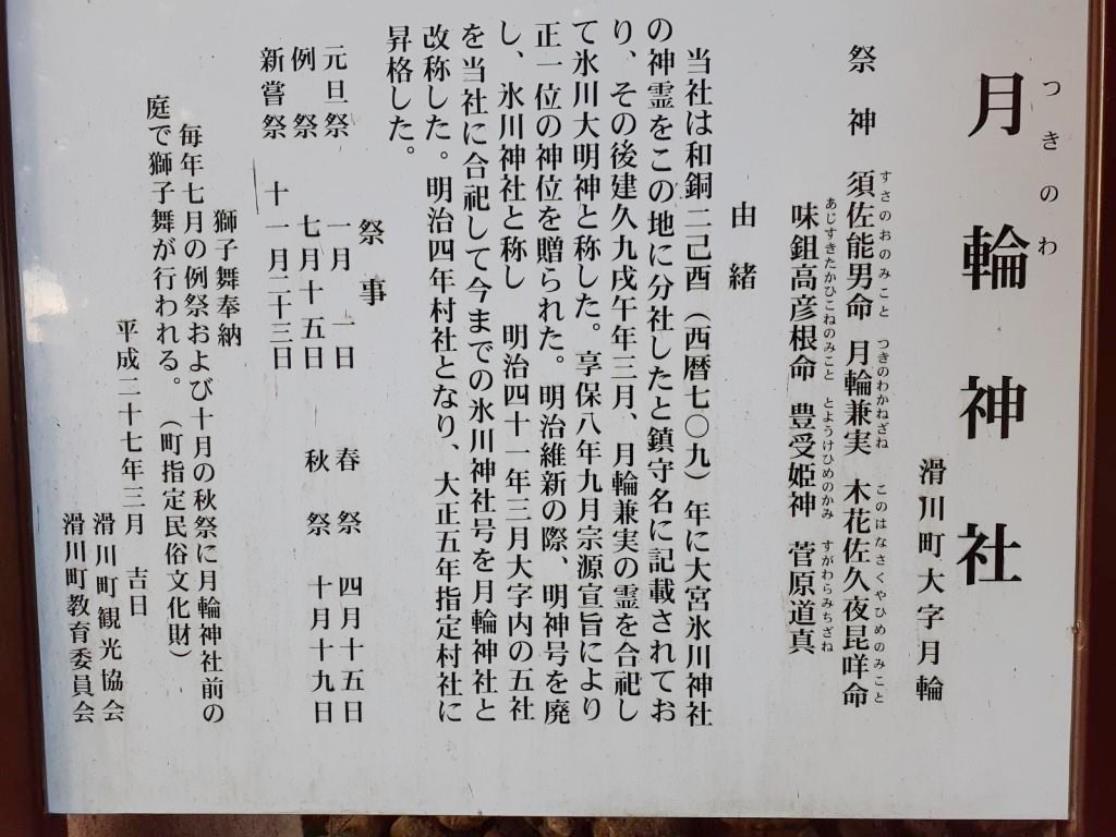 つきのわ
月輪神社
滑川町大字月輪
すさのおのみこと つきのわかねざね このはなさくやひめのみこと
祭神 須佐能男命 月輪兼実 木花佐久夜昆咩命
あじすきたかひこねのみこと とようけひめのかみ すがわらみちざね
味鉏高彦根命 豊受姫神 菅原道真
由緒
当社は和銅二己酉(西暦七〇九)年に大宮氷川神社
の神霊をこの地に分社したと鎮守名に記載されてお
り、その後建久九戌午年三月、月輪兼実の霊を合祀し
て氷川大明神と称した。享保八年九月宗源宣旨により
正一位の神位を贈られた。明治維新の際、明神号を廃
し、氷川神社と称し 明治四十一年三月大字内の五社
を当社に合祀して今までの氷川神社号を月輪神社と
改称した。明治四年村社となり、大正五年指定村社に
昇格した。
祭事
元旦祭 一月 一日 春祭 四月十五日
例祭 七月十五日 秋祭 十月十九日
新嘗祭 十一月二十三日
獅子舞奉納
毎年七月の例祭および十月の秋祭に月輪神社前の
庭で獅子舞が行われる。(町指定民俗文化財)
平成二十七年三月 吉日
滑川町観光協会
滑川町教育委員会